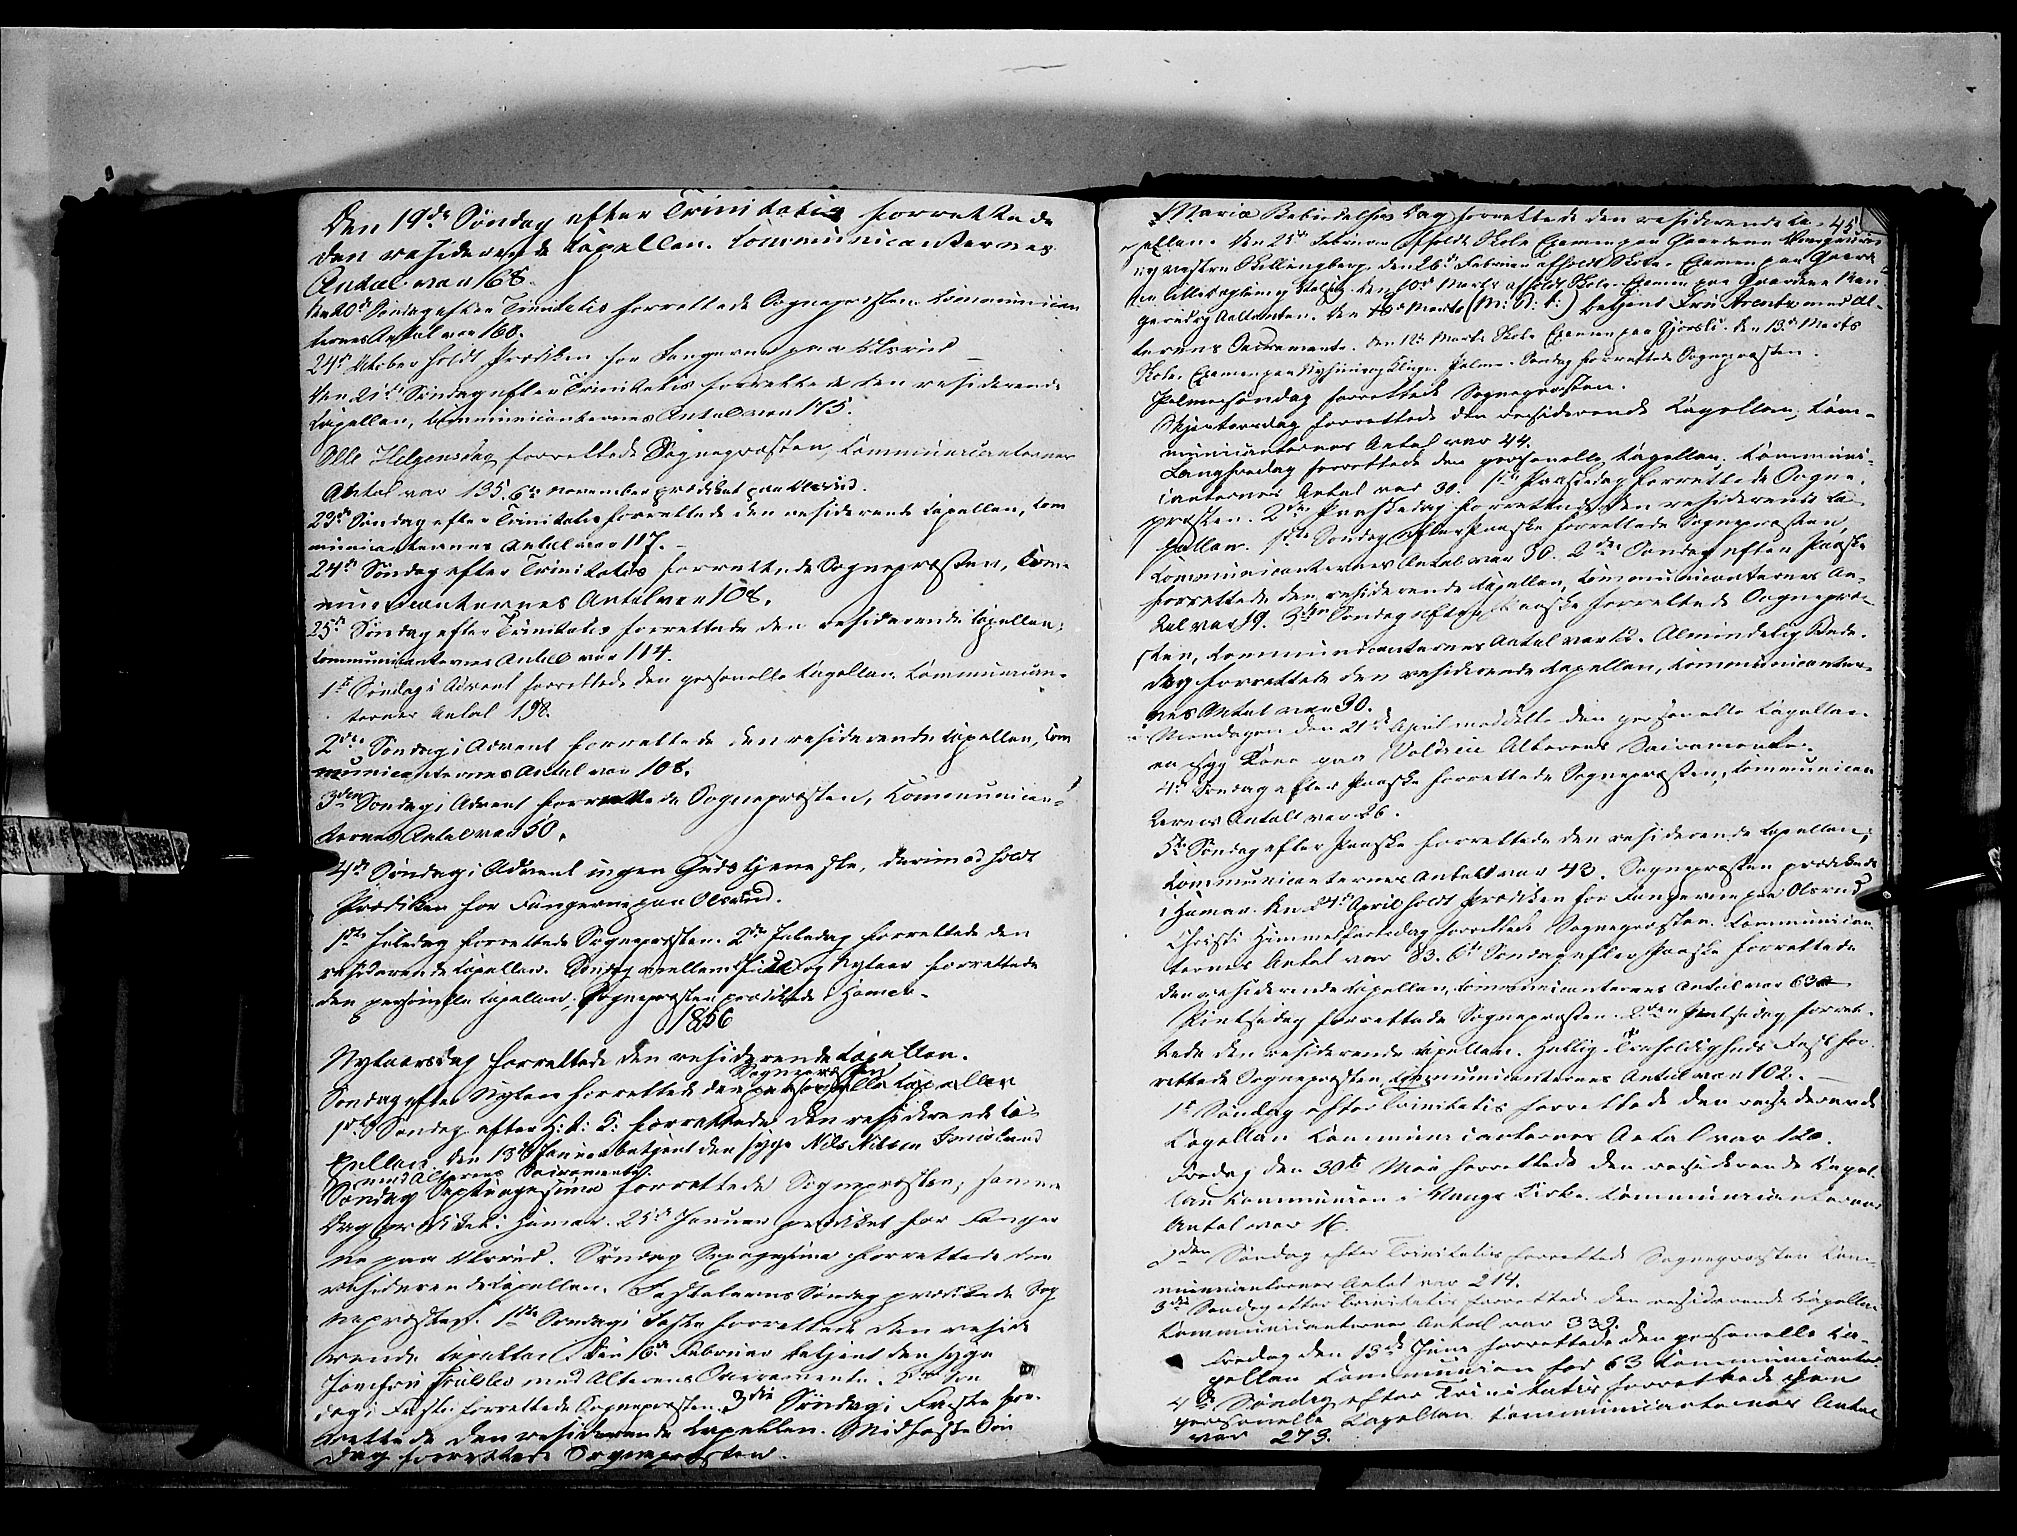 Den 19de Søndag efter Trinitatis forrettede
den residerende Capellan. Communicanternes
Antal var 168.
Den 20de Søndag efter Trinitatis forrettede Sognepræsten Communican
ternes Antal var 168.
24de Oktober holdt Prædiken for Fangerne paa Olsrud
Den 21de Søndag efter Trinitatis forrettede den residerende
Capellan, Communicanternes Antal var 175.
Alle Helgensdag forrettede Sognepræsten, Communicanternes
Antal var 135. 6te November prædiket paa Olsrud.
23de Søndag efter Trinitatis forrettede den residerende Capellan, Com
municanternes Antal var 117.
24de Søndag efter Trinitatis forrettede Sognepræsten, Com-
municanternes Antal var 108.
25de Søndag efter Trinitatis forrettede den residerende Capellan,
Communicanternes Antal var 114.
1ste Søndag i Advent forrettede den personelle Capellan. Communican-
ternes Antal 198.
2den Søndag i Advent forrettede den residerende Capellan, Com
municanternes Antal var 108.
3den Søndag i Advent forrettede Sognepræsten, Communican-
ternes Antal var 50.
4de Søndag i Advent ingen Gudstjeneste, derimod holdt
Prædiken for Fangerne paa Olsrud.
1ste Juledag forrettede Sognepræsten. 2den Juledag forrettede den
residerende Capellan. Søndag mellem Juul og Nytaar forrettede
den personelle Capellan, Sognepræsten prædikede i Hamar.
1856
Nytaarsdag forrettede den residerende Capellan.
Sognepræsten
Søndag efter Nytaar forrettede den personelle Capellan
1ste Søndag efter H. 3. K. forrettede den residerende Ca-
pellan. Den 13de Januar betjent den syge Nils Nilsen
med Alterens Sacramente.
Søndag Septuagesima forrettede Sognepræsten, samme
Dag prædiket i Hamar. 25de Januar prædiket for Fanger
ne paa Olsrud. Søndag Sexagesima forrettede den
residerende Capellan. Fastelavns Søndag prædikede Sog
nepræsten. 1ste Søndag i Faste forrettede den reside
rende Capellan. Den 16de Februar betjent den syge
med Alterens Sacramente. 2den Søn
dag i Faste forrettede Sognepræsten. 3die Søndag i Faste for-
rettede den residerende Capellan. Midfaste Søn
dag forrettede Sognepræsten.
45
Mariæ Bebudelses Dag forrettede den residerende Ca-
pellan. Den 25de Februar afholdt Skole Examen paa Gaardene
og vestre Skillingberg. den 26de Februar afholdt Skole-Examen paa Gaar
Den 10de Marts afholdt Skole-Examen paa Gaardene
Den Marts betjent Fru Arentz med Al-
terens Sacramente. Den 12te Marts Skole Examen paa Gjørsli. den 13de Marts
Skole-Examen paa Palme-Søndag forrettede Sognepræsten.
Palmesøndag forrettede Sognepræsten.
Skjærtorsdag forrettede den residerende Capellan, Com-
municanternes Antal var 44.
Langfredag forrettede den personelle Capellan. Communi-
canternes Antal var 30. 1ste Paaskedag forrettede Sogne-
præsten. 2den Paaskedag forrettede den residerende Ca-
pellan. 1ste Søndag efter Paaske forrettede Sognepræsten,
Communicanternes Antal var 30. 2den Søndag efter Paaske
forrettede den residerende Capellan, Communicanternes An-
tal var 19. 3die Søndag efter Paaske forrettede Sognepræ-
sten, Communicanternes Antal var 12. Almindelig Bede-
dag forrettede den residerende Capellan, Communicanter-
nes Antal var 30.
Mandagen den 21de April meddelte den personelle Capellan
en syg Kone paa Voldein Alterens Sacramente.
4de Søndag efter Paaske forrettede Sognepræsten, Communican
ternes Antal var 26.
5te Søndag efter Paaske forrettede den residerende Capellan,
Communicanternes Antal var 43. Sognepræsten prædikede
i Hamar. Den 24de April holdt Prædiken for Fangerne paa Olsrud
Christi Himmelfartsdag forrettede Sognepræsten. Communican
ternes Antal var 83. 6te Søndag efter Paaske forrettede
den residerende Capellan, Communicanternes Antal var 63
Pintsedag forrettede Sognepræsten. 2den Pintsedag forret-
tede den residerende Capellan. Hellig Trefoldigheds Fest for-
rettede Sognepræsten, Communicanternes Antal var 102.
1ste Søndag efter Trinitatis forrettede den residerende
Capellan Communicanternes Antal var 120.
Fredag den 30te Mai forrettede den residerende Capel-
lan Communion i Vangs Kirke. Communicanternes
Antal var 16.
2den Søndag efter Trinitatis forrettede Sognepræsten Com-
municanternes Antal var 214.
3die Søndag efter Trinitatis forrettede den residerende Capellan
Communicanternes Antal var 339.
Fredag den 13de Juni forrettede den personelle Ca-
pellan Communion for 63 Communicanter
4de Søndag efter Trinitatis forrettede den
personelle Capellan Communicanternes Antal
var 273.